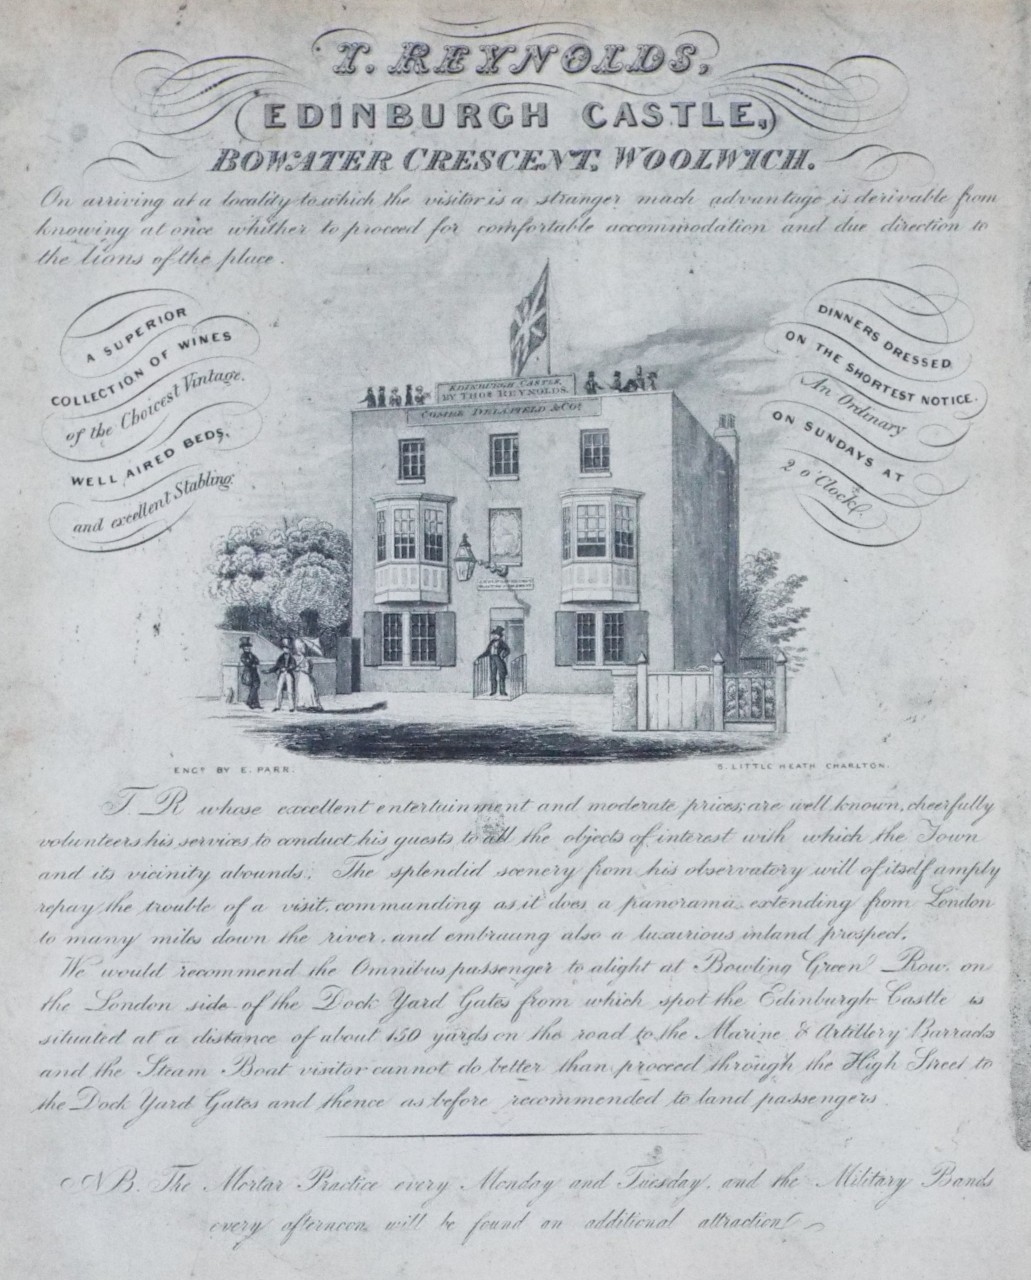 T. REYNOLDS,
EDINBURGH CASTLE,
BOWATER CRESCENT, WOOLWICH.
On arriving at a locality to which the visitor is a stranger much advantage is derivable from
knowing at once whither to proceed for comfortable accommodation and due direction to
the lions of the place.
A SUPERIOR
COLLECTION OF WINES
of the Choicest Vintage.
WELL AIRED BEDS,
and excellent Stabling.
DINNERS DRESSED
ON THE SHORTEST NOTICE.
An Ordinary
ON SUNDAYS AT
2 o'Clock.
EDINBURGH CASTLE,
BY THOS REYNOLDS.
COMBE DELAFIELD & Co.
ENGD BY E. PARR.
LITTLE HEATH CHARLTON.
T. R. whose excellent entertainment and moderate prices, are well known, cheerfully
volunteers his services to conduct his guests to all the objects of interest with which the Town
and its vicinity abounds; The splendid scenery from his observatory will of itself amply
repay the trouble of a visit, commanding as it does a panorama extending from London
to many miles down the river, and embracing also a luxurious inland prospect.
We would recommend the Omnibus passenger to alight at Bowling Green Row, on
the London side of the Dock Yard Gates from which spot the Edinburgh Castle is
situated at a distance of about 150 yards on the road to the Marine & Artillery Barracks
and the Steam Boat visitor cannot do better than proceed through the High Street to
the Dock Yard Gates and thence as before recommended to land passengers.
NB. The Mortar Practice every Monday and Tuesday, and the Military Bands
every afternoon, will be found an additional attraction.